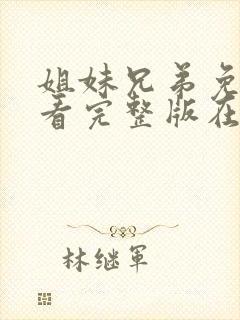 姐妹兄弟免
看完整版在
林继军